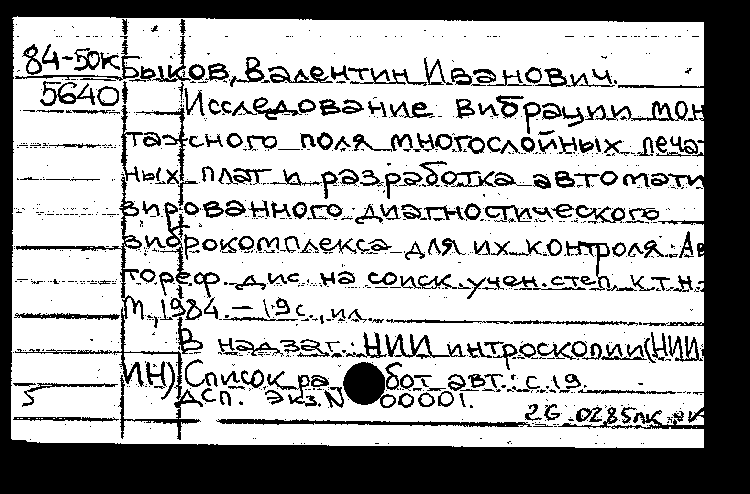 84-50к Быков, Валентин Иванович.
5640 Исследование вибрации мон
тажного поля многослойных печат
ных плат и разработка автомати
зированного диагностического
виброкомплекса для их контроля: Ав
тореф. дис. на соиск. учен. степ. к.т.н.
М., 1984. — 19 с., ил.
В надзаг.: НИИ интроскопии (НИИ
ИН) Список работ авт.: с. 19.
5 ДСП. Экз. N 00001.